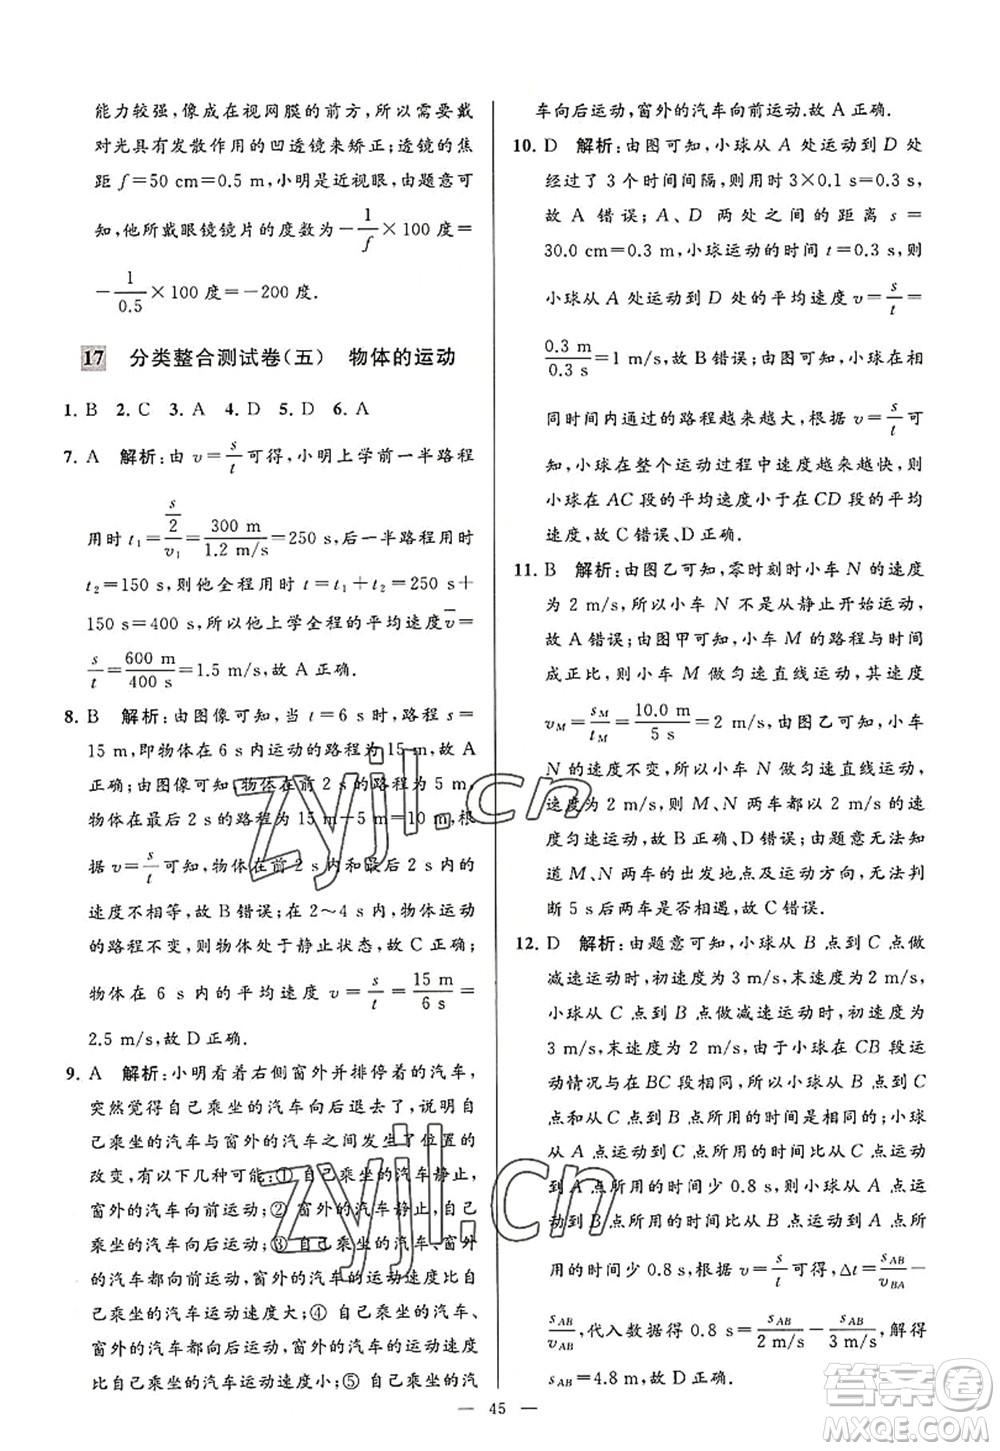 能力较强,像成在视网膜的前方,所以需要戴
对光具有发散作用的凹透镜来矫正;透镜的焦
距 f=50 cm=0.5 m,小明是近视眼,由题意可
知,他所戴眼镜镜片的度数为-1/f×100 度=
-1/0.5×100 度=-200 度.
17 分类整合测试卷(五) 物体的运动
1. B 2. C 3. A 4. D 5. D 6. A
7. A 解析:由 v=s/t可得,小明上学前一半路程
用时 t₁=(s/2)/v₁=300 m/1.2 m/s=250 s,后一半路程用时
t₂=150 s,则他全程用时 t=t₁+t₂=250 s+
150 s=400 s,所以他上学全程的平均速度v̄=
s/t=600 m/400 s=1.5 m/s,故 A 正确.
8. B 解析:由图像可知,当 t=6 s 时,路程 s=
15 m,即物体在 6 s 内运动的路程为 15 m,故 A
正确;由图像可知,物体在前 2 s 的路程为 5 m,
物体在最后 2 s 的路程为 15 m-5 m=10 m,根
据 v=s/t可知,物体在前 2 s 和最后 2 s 内的
速度不相等,故 B 错误;在 2～4 s 内,物体运动
的路程不变,则物体处于静止状态,故 C 正确;
物体在 6 s 内的平均速度 v=s/t=15 m/6 s=
2.5 m/s,故 D 正确.
9. A 解析:小明看着右侧窗外并排停着的汽车,
突然觉得自己乘坐的汽车向后退去了,说明自
己乘坐的汽车与窗外的汽车之间发生了位置的
改变,有以下几种可能:① 自己乘坐的汽车静止,
窗外的汽车向前运动;② 窗外的汽车静止,自己
乘坐的汽车向后运动;③ 自己乘坐的汽车、窗外
的汽车都向前运动,窗外的汽车运动速度比自
己乘坐的汽车运动速度大;④ 自己乘坐的汽车、
窗外的汽车都向后运动,自己乘坐的汽车运动
速度比窗外的汽车运动速度大;⑤ 自己乘坐的汽
车向后运动,窗外的汽车向前运动.故 A 正确.
10. D 解析:由图可知,小球从 A 处运动到 D 处
经过了 3 个时间间隔,则用时 3×0.1 s=0.3 s,
故 A 错误;A、D 两处之间的距离 s=
30.0 cm=0.3 m,小球运动的时间 t=0.3 s,则
小球从 A 处运动到 D 处的平均速度 v=s/t=
0.3 m/0.3 s=1 m/s,故 B 错误;由图可知,小球在相
同时间内通过的路程越来越大,根据 v=s/t可
知,小球在整个运动过程中速度越来越快,则
小球在 AC 段的平均速度小于在 CD 段的平均
速度,故 C 错误、D 正确.
11. B 解析:由图乙可知,零时刻时小车 N 的速度
为 2 m/s,所以小车 N 不是从静止开始运动,
故 A 错误;由图甲可知,小车 M 的路程与时间
成正比,则小车 M 做匀速直线运动,其速度
v_M=s_M/t_M=10.0 m/5 s=2 m/s,由图乙可知,小车
N 的速度不变,所以小车 N 做匀速直线运动,
速度为 2 m/s,则 M、N 两车都以 2 m/s 的速
度匀速运动,故 B 正确、D 错误;由题意无法知
道 M、N 两车的出发地点及运动方向,无法判
断 5 s 后两车是否相遇,故 C 错误.
12. D 解析:由题意可知,小球从 B 点到 C 点做
减速运动时,初速度为 3 m/s,末速度为 2 m/s,
小球从 C 点到 B 点做减速运动时,初速度为
3 m/s,末速度为 2 m/s,由于小球在 CB 段运
动情况与在 BC 段相同,所以小球从 B 点到 C
点和从 C 点到 B 点所用的时间是相同的;小球
从 A 点运动到 C 点所用的时间比从 C 点运动
到 A 点所用的时间少 0.8 s,则小球从 A 点运
动到 B 点所用的时间比从 B 点运动到 A 点所
用的时间少 0.8 s,根据 v=s/t可得,Δt=s_AB/v_BA-
s_AB/v_AB,代入数据得 0.8 s=s_AB/2 m/s-s_AB/3 m/s,解得
s_AB=4.8 m,故 D 正确.
— 45 —
zyjl.cn
zyjl.cn
答案圈
MXQE.COM